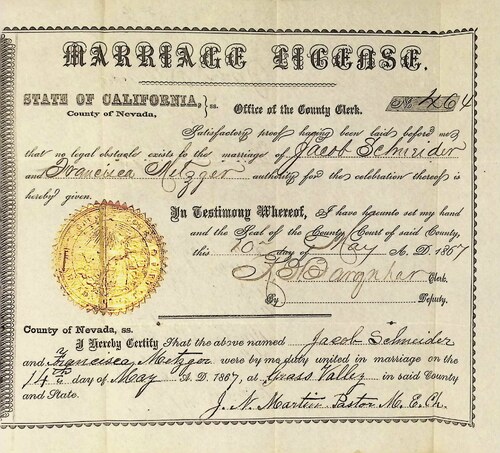 MARRIAGE LICENSE.
STATE OF CALIFORNIA, } ss.
County of Nevada,
Office of the County Clerk.
No 464
Satisfactory proof having been laid before me
that no legal obstacle exists to the marriage of Jacob Schneider
and Francisca Metzger authority for the celebration thereof is
hereby given.
In Testimony Whereof, I have hereunto set my hand
and the Seal of the County Court of said County,
this 10th day of May A. D. 1867
Clerk.
By Deputy.
County of Nevada, ss.
I Hereby Certify That the above named Jacob Schneider
and Francisca Metzger were by me duly united in marriage on the
14th day of May A. D. 1867, at Grass Valley in said County
and State.
J. N. Martin Pastor M. E. Ch.